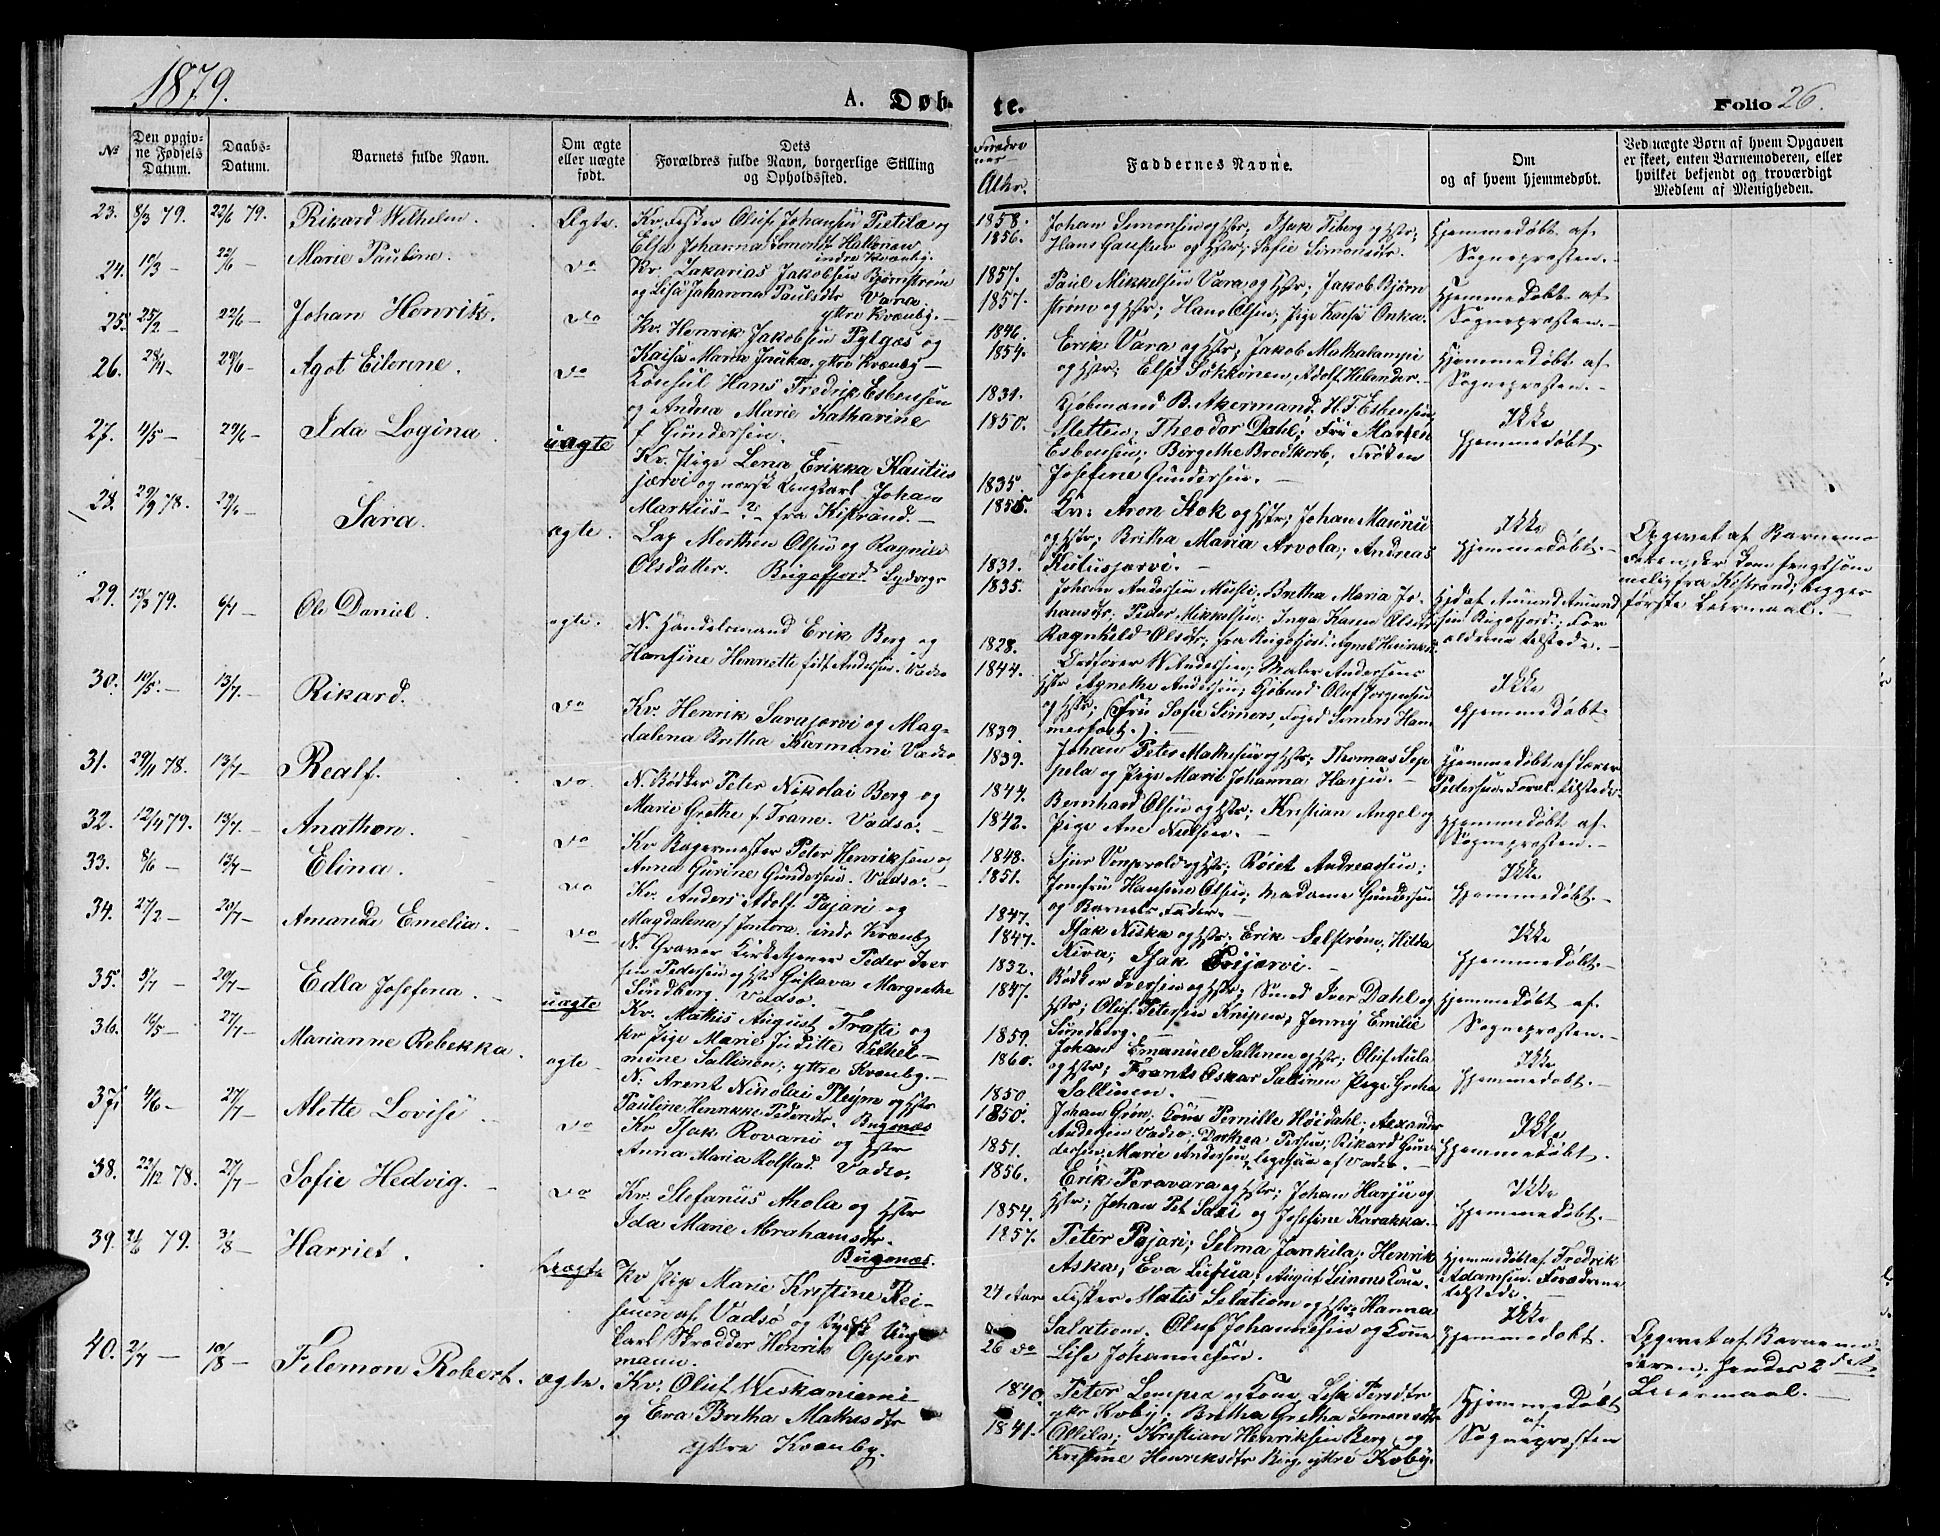 1879.
A. Døb-
te.
Folio 26.
No
Den opgiv-
ne Fødsels
Datum.
Daabs-
Datum.
Barnets fulde Navn.
Om ægte
eller uægte
født.
Dets
Forældres fulde Navn, borgerlige Stilling
og Opholdssted.
Alder.
Faddernes Navne.
Om
og af hvem hjemmedøbt.
Ved uægte Børn af hvem Opgaven
er skeet, enten Barnemoderen, eller
hvilket bekjendt og troværdigt
Medlem af Menigheden.
23. 8/3 79. 22/6 79. Rikard Wilhelm. Ægte.
Kv. Fisker Oluf Johansen Pietilæ og
Elsa Johanna Simonsdr
indre Kvænby.
1858.
1856.
Johan Simonsen og Hstr; Isak Fiberg og Hstr;
Hans og Hstr; Sofie Simonsdr.
Hjemmedøbt af
Sognepræsten.
24. 10/3 — 22/6 Marie Pauline. do
Kv. Zakarias Jakobsen Bjørnstrøm
og Lisa Johanna Paulsdtr Vara,
ytre Kvænby.
1857.
1857.
Paul Mikkelsen Vara og Hstr; Jakob Bjørn
strøm og Hstr; Hans Olsen; Pige Kaisa Onka.
Hjemmedøbt af
Sognepræsten.
25. 25/2 — 22/6 — Johan Henrik. do
Kv. Henrik Jakobsen Pylgæs og
Kaisa Maria Jauka, ytre Kvænby —
1846.
1854.
Erik Vara og Hstr; Jakob Matkalampi
og Hstr; Else Sokkonen, Adolf Helander.
Hjemmedøbt af
Sognepræsten.
26. 29/6 — Agot Eilerine. do
Konsul Hans Fredrik Esbensen
og Andrea Marie Katharine
f. Gundersen.
1831.
1850.
Kjøbmand B. Akermand, H. F. Esbensen,
Sletten; Theodor Dahl; Fru Marten
Esbensen; Bergethe Brodtkorb; Frøken
Josefine Gundersen.
Ikke
Hjemmedøbt.
27. 4/5 — 29/6 — Ida Logina. uægte
Kv. Pige Lena Erikka Kautus
järvi og norsk Ungkarl Johan
Markus — ? — fra Kistrand. —
1835.
1855.
Kv: Aron Stok og Hstr; Johan Maunu
og Hstr; Britha Maria Arvola; Andreas
Kutusjarvi. —
Ikke
Hjemmedøbt. —
Opgivet af Barnemo
deren, der kom frugtsom
melig fra Kistrand; begges
første Leiermaal. —
28. 29/9 78. 29/6 — Sara. ægte.
Lap Morthen Olsen og Ragnild
Olsdatter. Bugøfjord. Sydvrgr
1831.
1835.
Johan Andersen Mursti; Bretha Maria Jo-
hansdr; Peder Mikkelsen; Inga Karen Olsdr
Ragnhild Olsdr; fra Bugøfjord; Agnet Heinrik
Hjd af Amund Amund
sen Bugøfjord; For
ældrene tilstede. —
29. 13/3 79. 6/7 — Ole Daniel. ægte.
N. Handelsmand Erik Berg og
Hansine Henriette født Andersen. Vadsø
1828.
1844.
Ordfører W. Andersen; Maler Andersens
Hstr Agnethe Andersen; Kjøbmd Oluf Jørgensen
og Hstr; (Fru Sofie Simers, Foged Simers Ham
merfest.)
Ikke
Hjemmedøbt
30. 10/5. — 13/7. — Rikard. do
Kv. Henrik Sarajærvi og Mag-
dalena Britha Karmani Vadsø
1839.
1839.
Johan Peter Mathesen og Hstr; Thomas Sep
pela og Pige Marie Johanna Harju. —
Hjemmedøbt af Lærer
Pedersen, Foræl. tilstede.
31. 29/11 78. 13/7 — Realf. do.
N. Bødker Peter Nikolai Berg og
Marie Grethe f. Frane. Vadsø. —
1844.
1842.
Bernhard Olsen og Hstr; Kristian Angel og
Pige Ane Nielsen. —
Hjemmedøbt af
Sognepræsten. —
32. 12/4 79. 13/7. — Anathon. do
Kv Bagermester Peter Henriksen og
Anna Gurine Gundersen. Vadsø. —
1848.
1851.
Jomfru Hansine Olsen; Madame Gundersen
og Barnets Fader. —
Ikke
Hjemmedøbt. —
33. 8/6 — 13/7 — Elina. do
Kv. Anders Adolf Pajari og
Magdalena f. Jontora. indr. Kvænby
1847.
1847.
Isak Niska og Hstr; Erik Selstrøm, Hilda
Niva; Isak
Ikke
Hjemmedøbt. —
34. 27/2 — 20/7 — Amanda Emelia. do
N. Graver Kirketjener Peder Iver
sen Pedersen og Hst Gustava Margrethe
Sundberg. Vadsø.
1832.
1847.
Bødker Iversen og Hstr; Smed Iver Dahl og
Hstr; Oluf Petersen Knipen; Jenny Emilie
Sundberg. —
Hjemmedøbt af
Sognepræsten. —
35. 5/7 — 20/7 — Edla Josefina. uægte
Kv. Mathis August Trasti og
kv Pige Marie Juditte Vilhel-
mine Sallinen; yttre Kvænby. —
1859.
1860.
Johan Emanuel Sallinen og Hstr; Oluf Aula
og Hstr; Frants Oskar Sallinen Pige Greta
Sallinen. —
Ikke
Hjemmedøbt. —
36. 10/5 — 27/7 — Marianne Rebekka. ægte
N: Arent Nikolai Pleym og Hstr
Pauline Henrikke Pedersdtr. Bugønæs
1850
1850.
Johan Grøn; Kone Pernille Høidahl; Alexander
Andersen Vadsø. Dorthea Persen; Rikard Gun
dersen; Marie Andersen, ligesaa af Vadsø. —
Ikke
Hjemmedøbt.
37. 4/6 — 27/7 — Alette Lovise. do
Kv Isak Rovani og Hstr
Anna Maria Rolstad. Vadsø.
1851.
1856.
Erik Peravara og Hstr; Johan Harju og
Hstr; Johan Pet Saxi og Josefine Karakka.
Ikke
Hjemmedøbt. —
38. 22/12 78. 27/7 — Sofie Hedvig. — do
Kv. Stefanus Ahola og Hstr
Ida Marie Abrahamsdtr.
Bugønæs.
1854.
1857.
Peter Pajari; Selma Jankila; Henrik
Aska; Eva; August Simons Kone
Hjemmedøbt af Fredrik
Adamsen. Forældrene
tilstede. —
39. 2/6 79. 3/8 — Harriet. Uægte
Kv Pige Marie Kristine Rei-
af Vadsø og tydsk Ung
karl Skrædder Henrik Opper
mann.
24 Aar
26 do
Fisker Matis Salation og Hstr; Hanna
Salation. Oluf Johannesen og Kone
Lise Johannesen.
Ikke
Hjemmedøbt.
Opgivet af Barnemo
deren; hendes 2det
Leiermaal. —
40. 2/7 — 10/8 — Filemon Robert. ægte.
Kv. Oluf Niskaniemi
og Eva Britha Mathisdtr
yttre Kvænby.
1840.
1841.
Peter Lampea og Kone Lisa Persdtr
ytr Kvby; Britha Gretha Simonsdtr
Ollila; Kristian Henriksen Berg og
Kristine Henriksdtr Berg, yttre Kvby.
Hjemmedøbt
af
Sognepræsten